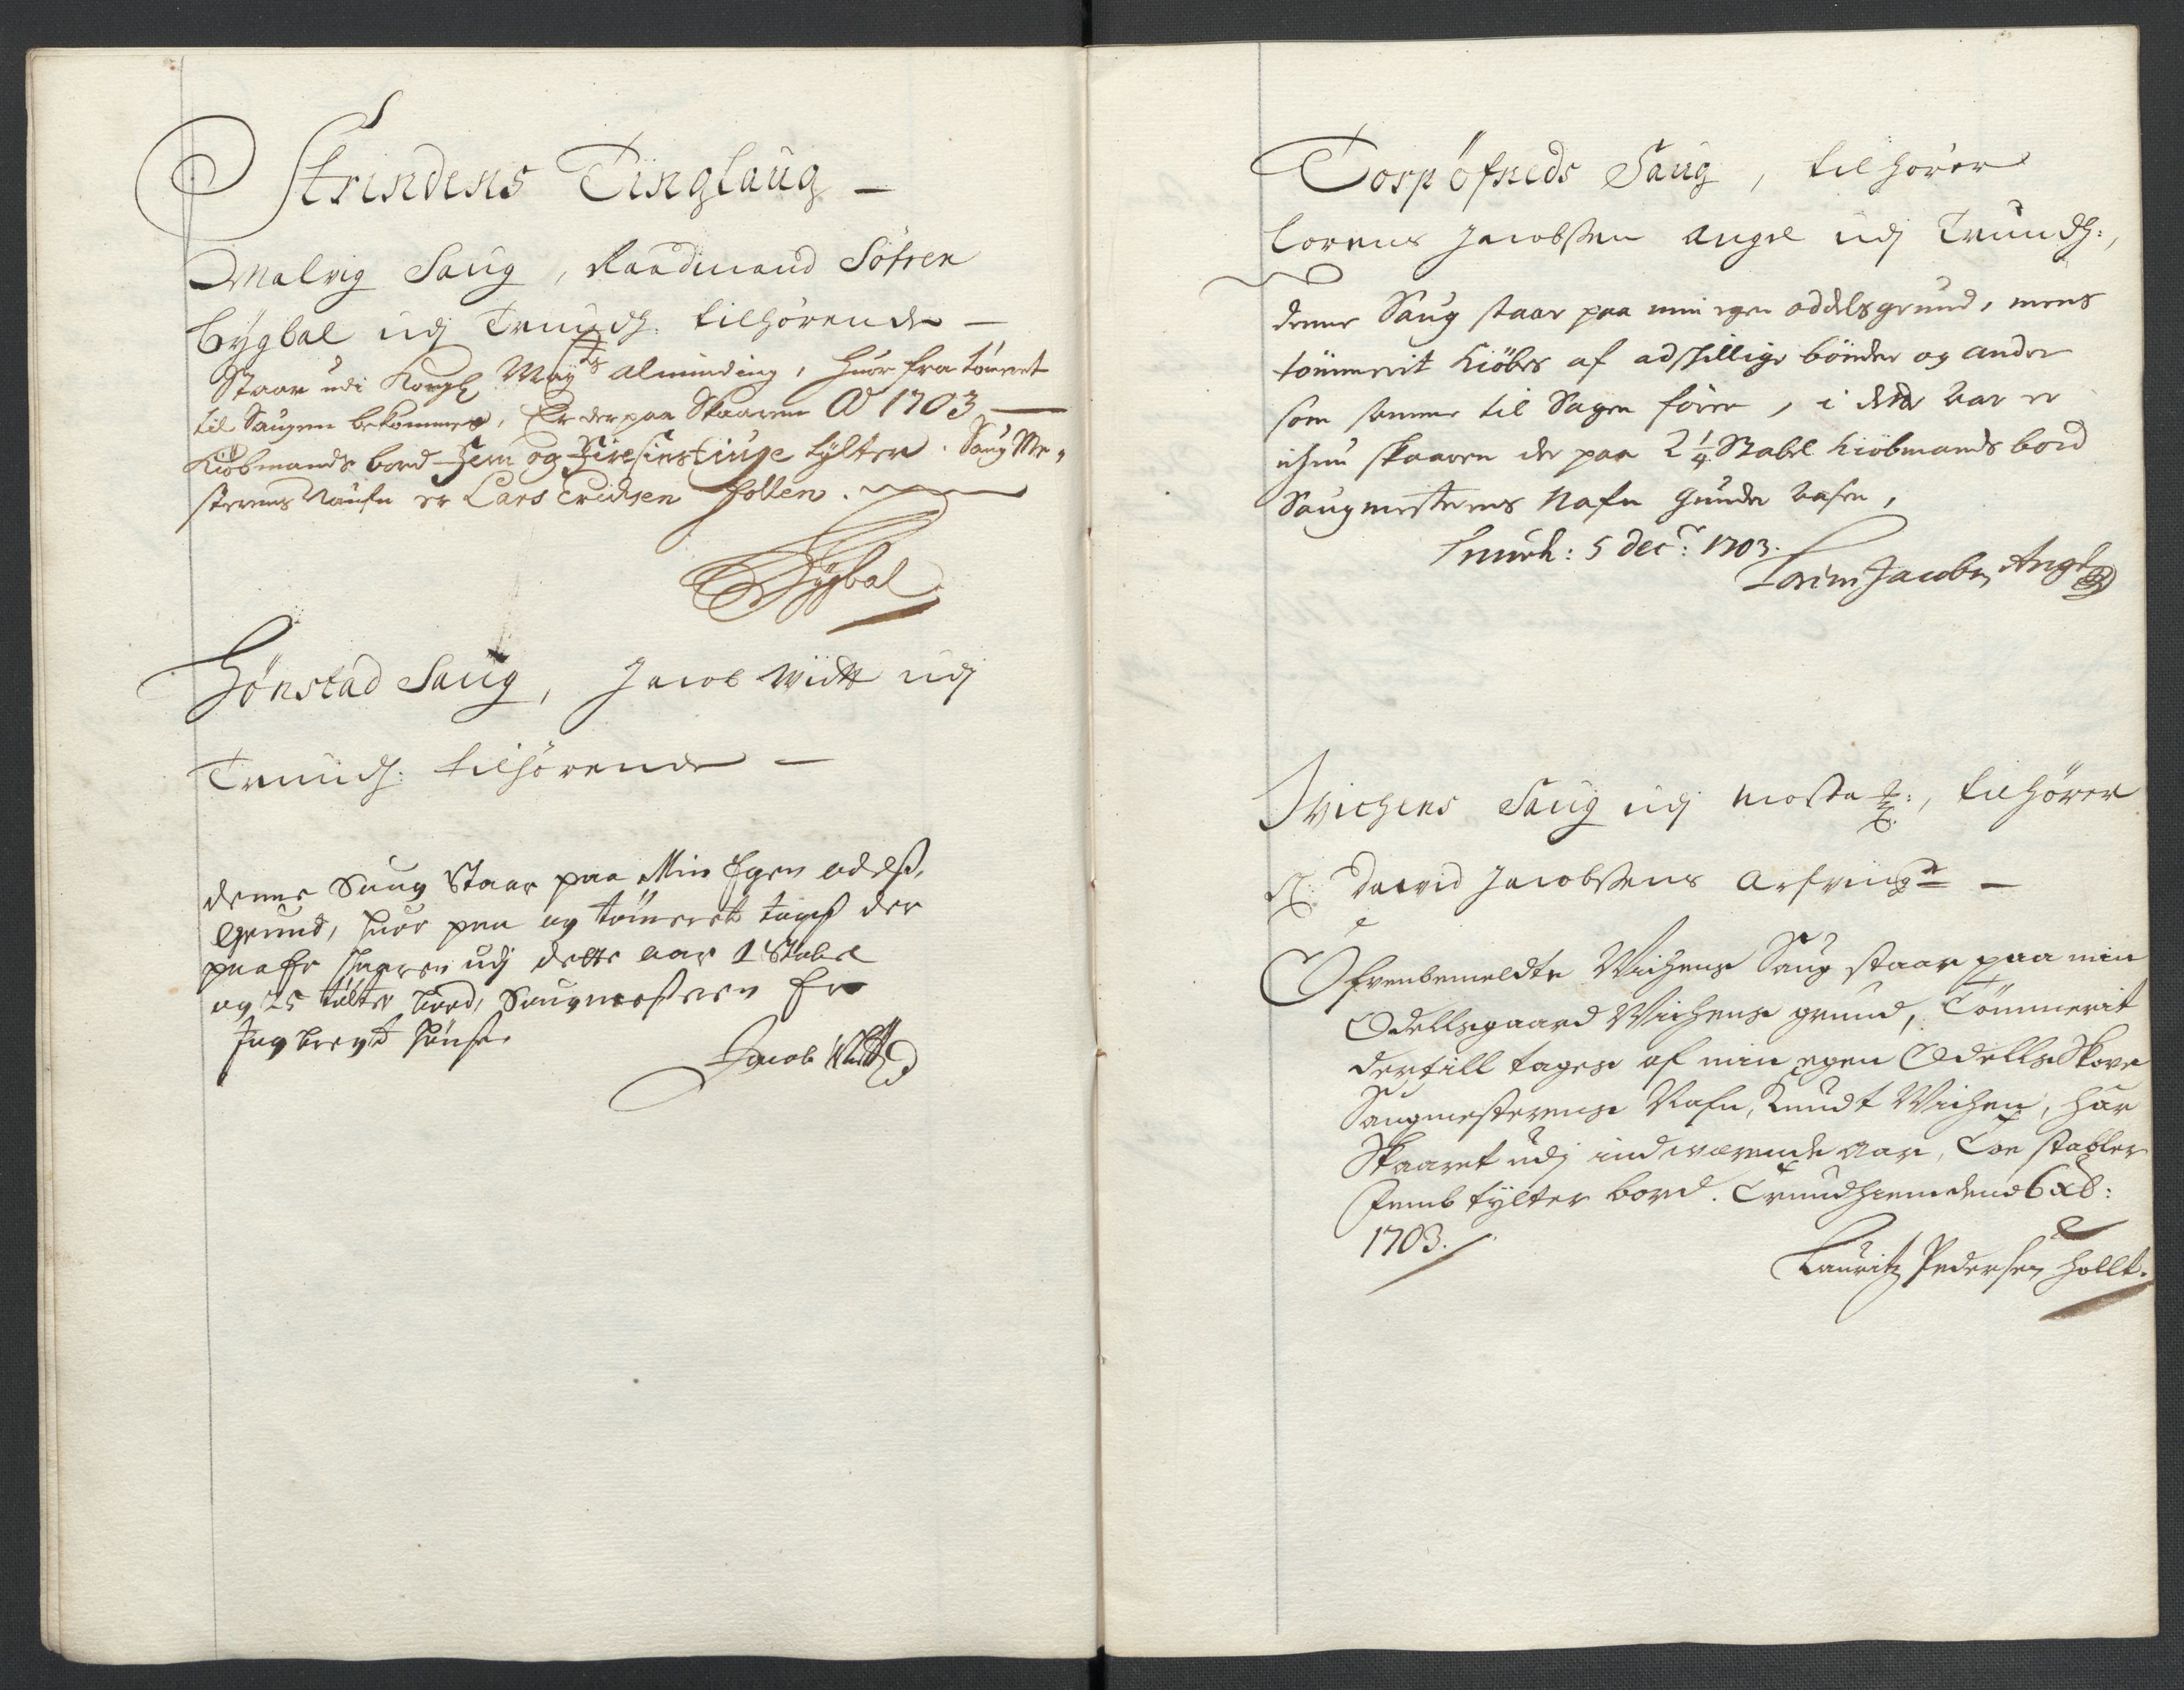 Strindens Tinglaug –
Malvig Saug, Raadmand Söfren
Bÿgbal udj Trundh: tilhörende –
Staar udi Kongl Mayts Alminding, huor fra tömret
til Saugen bekommes, Er der paa Skaaren Ao 1703 –
Kiöbmands bord Fem og Firesinstiuge tylter. Saug Me-
sterens Naufn er Lars Erichsen Hollen.
Bÿgbal
Hönstad Saug, Jacob Witt udj
Trundh: tilhörende –
denne Saug Staar paa Min Egen odelß
Grund, huor paa og tömeret tageß der
paa Er skaaren udj dette aar 1 Stabel
og 25 tölter bord, Saugmesteren Er
Ingbregt
Jacob Witt
Torp öfneds Saug, tilhörer
Lorens Jacobßen Angel udj Trundh:,
denne Saug staar paa min egen oddelsgrund, mens
tömmerit kiöbes af adskillige bönder og andre
som samme til Sagen förer, i dette Aar er
skaaren der paa 2 1/4 Stabel kiöbmands bord
Saugmesterens Nafn Gunder
Trundh: 5 decr: 1703.
Lorens Jacobsen Angel
Wichens Saug udj tilhörer
Sl: David Jacobßens Arfvinger –
Ofvenbemeldte Wichens Saug staar paa min
Odellsgaard Wichens grund, Tömmerit
dertill tages af min egen Odells Skove
Saugmesterens Nafn, Knudt Wichen, har
Skaaret udj indeværende Aar, Toe stabler
Femb tylter bord. Trundhiem dend 6 xb:
1703.
Lauritz Pedersen Hollt.